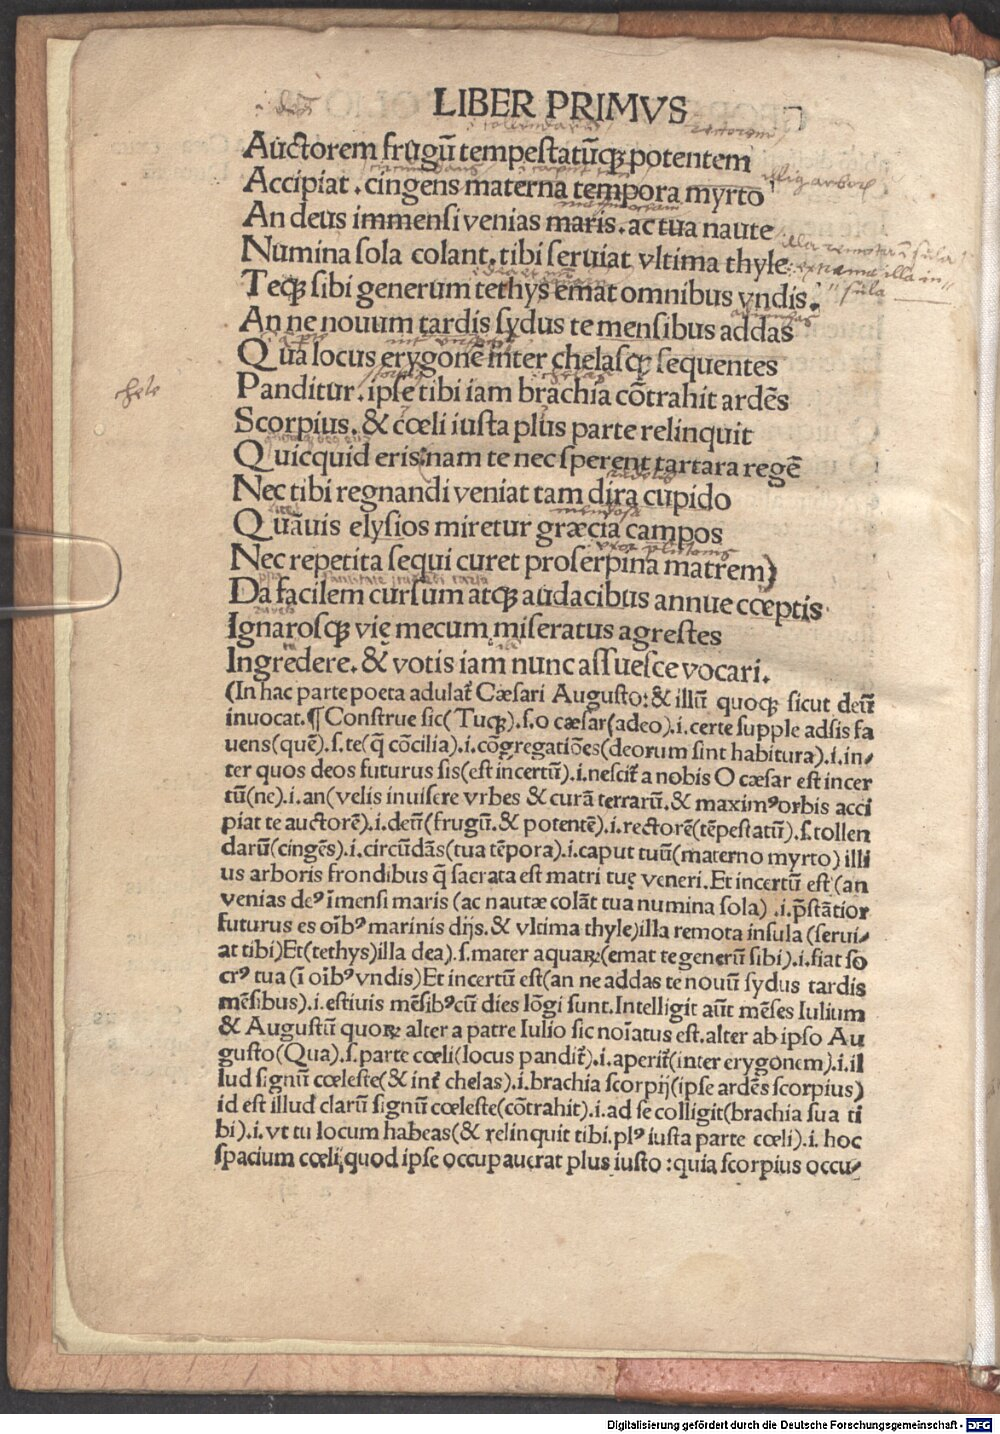 LIBER PRIMVS
Auctorem frugū tempestatūqꝫ potentem
Accipiat . cingens materna tempora myrto
An deus immensi venias maris . ac tua naute
Numina sola colant . tibi seruiat vltima thyle
Teqꝫ sibi generum tethys emat omnibus vndis .
An ne nouum tardis sydus te mensibus addas
Qua locus erygonē inter chelasqꝫ sequentes
chele
Panditur . ipse tibi iam brachia cōtrahit ardēs
Scorpius . & cœli iusta plus parte relinquit
Quicquid eris: nam te nec sperent tartara regē
Nec tibi regnandi veniat tam dira cupido
Quāuis elysios miretur græcia campos
Nec repetita sequi curet proserpina matrem)
Da facilem cursum atqꝫ audacibus annue cœptis
Ignarosqꝫ vię mecum miseratus agrestes
Ingredere . & votis iam nunc assuesce vocari .
(In hac parte poeta adulat᷑ Cæsari Augusto: & illū quoqꝫ sicut deū
inuocat. ¶ Construe sic (Tuqꝫ) .s. o cæsar (adeo) .i. certe supple adsis fa
uens (quē) .s. te (q̄ cōcilia) .i. cōgregatiōes (deorum sint habitura) .i. in⸗
ter quos deos futurus sis (est incertū) .i. nescit᷑ a nobis O cæsar est incer
tū (ne) .i. an (velis inuisere vrbes & curā terrarū. & maximꝰ orbis acci
piat te auctorē) .i. deū (frugū. & potentē) .i. rectorē (tēpestatū) .s. tollen
darū (cingēs) .i. circūdās (tua tēpora) .i. caput tuū (materno myrto) illi
us arboris frondibus q̄ sacrata est matri tuę veneri. Et incertū est (an
venias deꝰ īmensi maris (ac nautæ colāt tua numina sola) .i. p̄stātior
futurus es oībꝰ marinis dijs. & vltima thyle) illa remota insula (serui⸗
at tibi) Et (tethys) illa dea) .s. mater aquaꝝ (emat te generū sibi) .i. fiat so
crꝰ tua (ī oībꝰ vndis) Et incertū est (an ne addas te nouū sydus tardis
mēsibus) .i. estiuis mēsibꝰ cū dies lōgi sunt. Intelligit aūt mēses Iulium
& Augustū quoꝝ alter a patre Iulio sic noīatus est. alter ab ipso Au
gusto (Qua) .s. parte cœli (locus pandit᷑) .i. aperit᷑ (inter erygonem) .i. il
lud signū cœleste (& int᷑ chelas) .i. brachia scorpij (ipse ardēs scorpius)
id est illud clarū signū cœleste (cōtrahit) .i. ad se colligit (brachia sua ti
bi) .i. vt tu locum habeas (& relinquit tibi. plꝰ iusta parte cœli) .i. hoc
spacium cœli, quod ipse occupauerat plus iusto : quia scorpius occu⸗
Digitalisierung gefördert durch die Deutsche Forschungsgemeinschaft - DFG